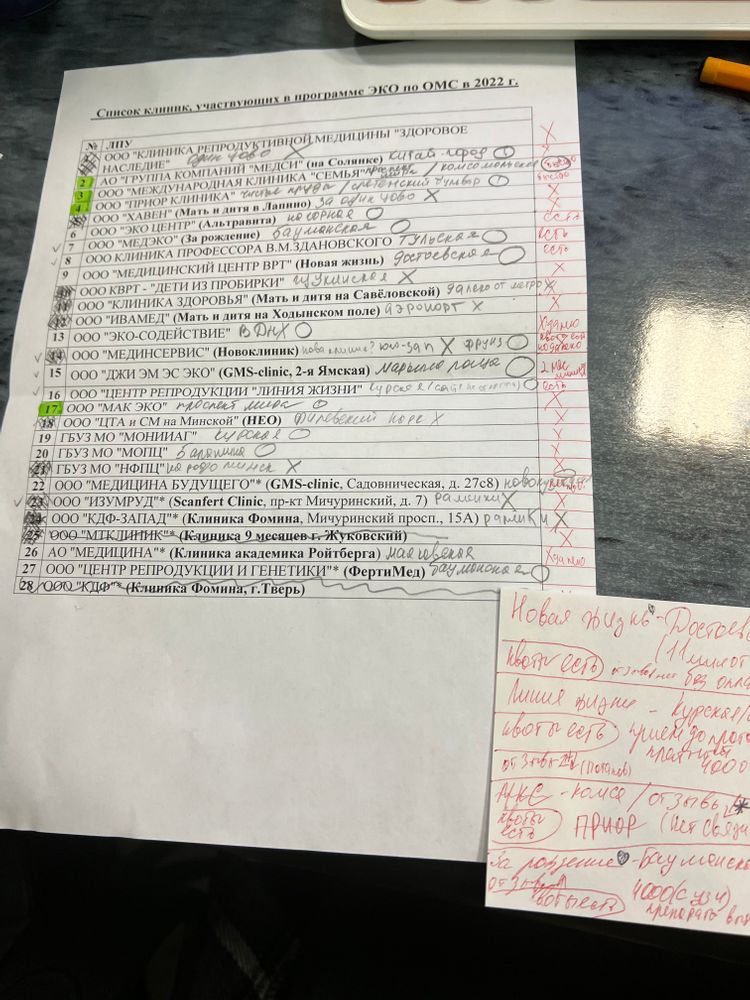 Список клиник, участвующих в программе ЭКО по ОМС в 2022 г.
№ ЛПУ
ООО "КЛИНИКА РЕПРОДУКТИВНОЙ МЕДИЦИНЫ "ЗДОРОВОЕ
НАСЛЕДИЕ" одинцово X X
2 АО "ГРУППА КОМПАНИЙ "МЕДСИ" (на Солянке) китай-город
3 ООО "МЕЖДУНАРОДНАЯ КЛИНИКА "СЕМЬЯ" / комсомольская
4 ООО "ПРИОР КЛИНИКА" чистые пруды / сретенский бульвар
ООО "ХАВЕН" (Мать и дитя в Лапино) за одинцово X X
6 ООО "ЭКО ЦЕНТР" (Альтравита) нагорная есть
7 ООО "МЕДЭКО" (За рождение) бауманская есть
8 ООО КЛИНИКА ПРОФЕССОРА В.М.ЗДАНОВСКОГО Тульская есть
9 ООО "МЕДИЦИНСКИЙ ЦЕНТР ВРТ" (Новая жизнь) достоевская
10 ООО КВРТ - "ДЕТИ ИЗ ПРОБИРКИ" щукинская X
ООО "КЛИНИКА ЗДОРОВЬЯ" (Мать и дитя на Савёловской) далеко от метро X
12 ООО "ИВАМЕД" (Мать и дитя на Ходынском поле) аэропорт X
13 ООО "ЭКО-СОДЕЙСТВИЕ" ВДНХ
14 ООО "МЕДИНСЕРВИС" (Новоклиник) юго-зап X фрунз
15 ООО "ДЖИ ЭМ ЭС ЭКО" (GMS-clinic, 2-я Ямская) Марьина роща
16 ООО "ЦЕНТР РЕПРОДУКЦИИ "ЛИНИЯ ЖИЗНИ" курская есть
17 ООО "МАК ЭКО" проспект мира X
18 ООО "ЦТА и СМ на Минской" (НЕО) Филевский парк X
19 ГБУЗ МО "МОНИИАГ" курская
20 ГБУЗ МО "МОПЦ" X
21 ГБУЗ МО "НФПЦ" X
22 ООО "МЕДИЦИНА БУДУЩЕГО"* (GMS-clinic, Садовническая, д. 27с8)
23 ООО "ИЗУМРУД"* (Scanfert Clinic, пр-кт Мичуринский, д. 7) раменки X X
24 ООО "КДФ-ЗАПАД"* (Клиника Фомина, Мичуринский просп., 15А) раменки X
25 ООО "МТКЛИНИК"* (Клиника 9 месяцев г. Жуковский) X
26 АО "МЕДИЦИНА"* (Клиника академика Ройтберга) маяковская X
27 ООО "ЦЕНТР РЕПРОДУКЦИИ И ГЕНЕТИКИ"* (ФертиМед) бауманская
28 ООО "КДФ"* (Клиника Фомина, г.Тверь)
Новая жизнь - Достоев
(11 мин от
квоты есть без
Линия жизни - Курская
квоты есть прием до
платный 4000
отзывы
- комсо / отзывы
квоты
есть ПРИОР (нет связи
За рождение - Бауманска
отзывы 4000 (с узи)
квоты есть препараты